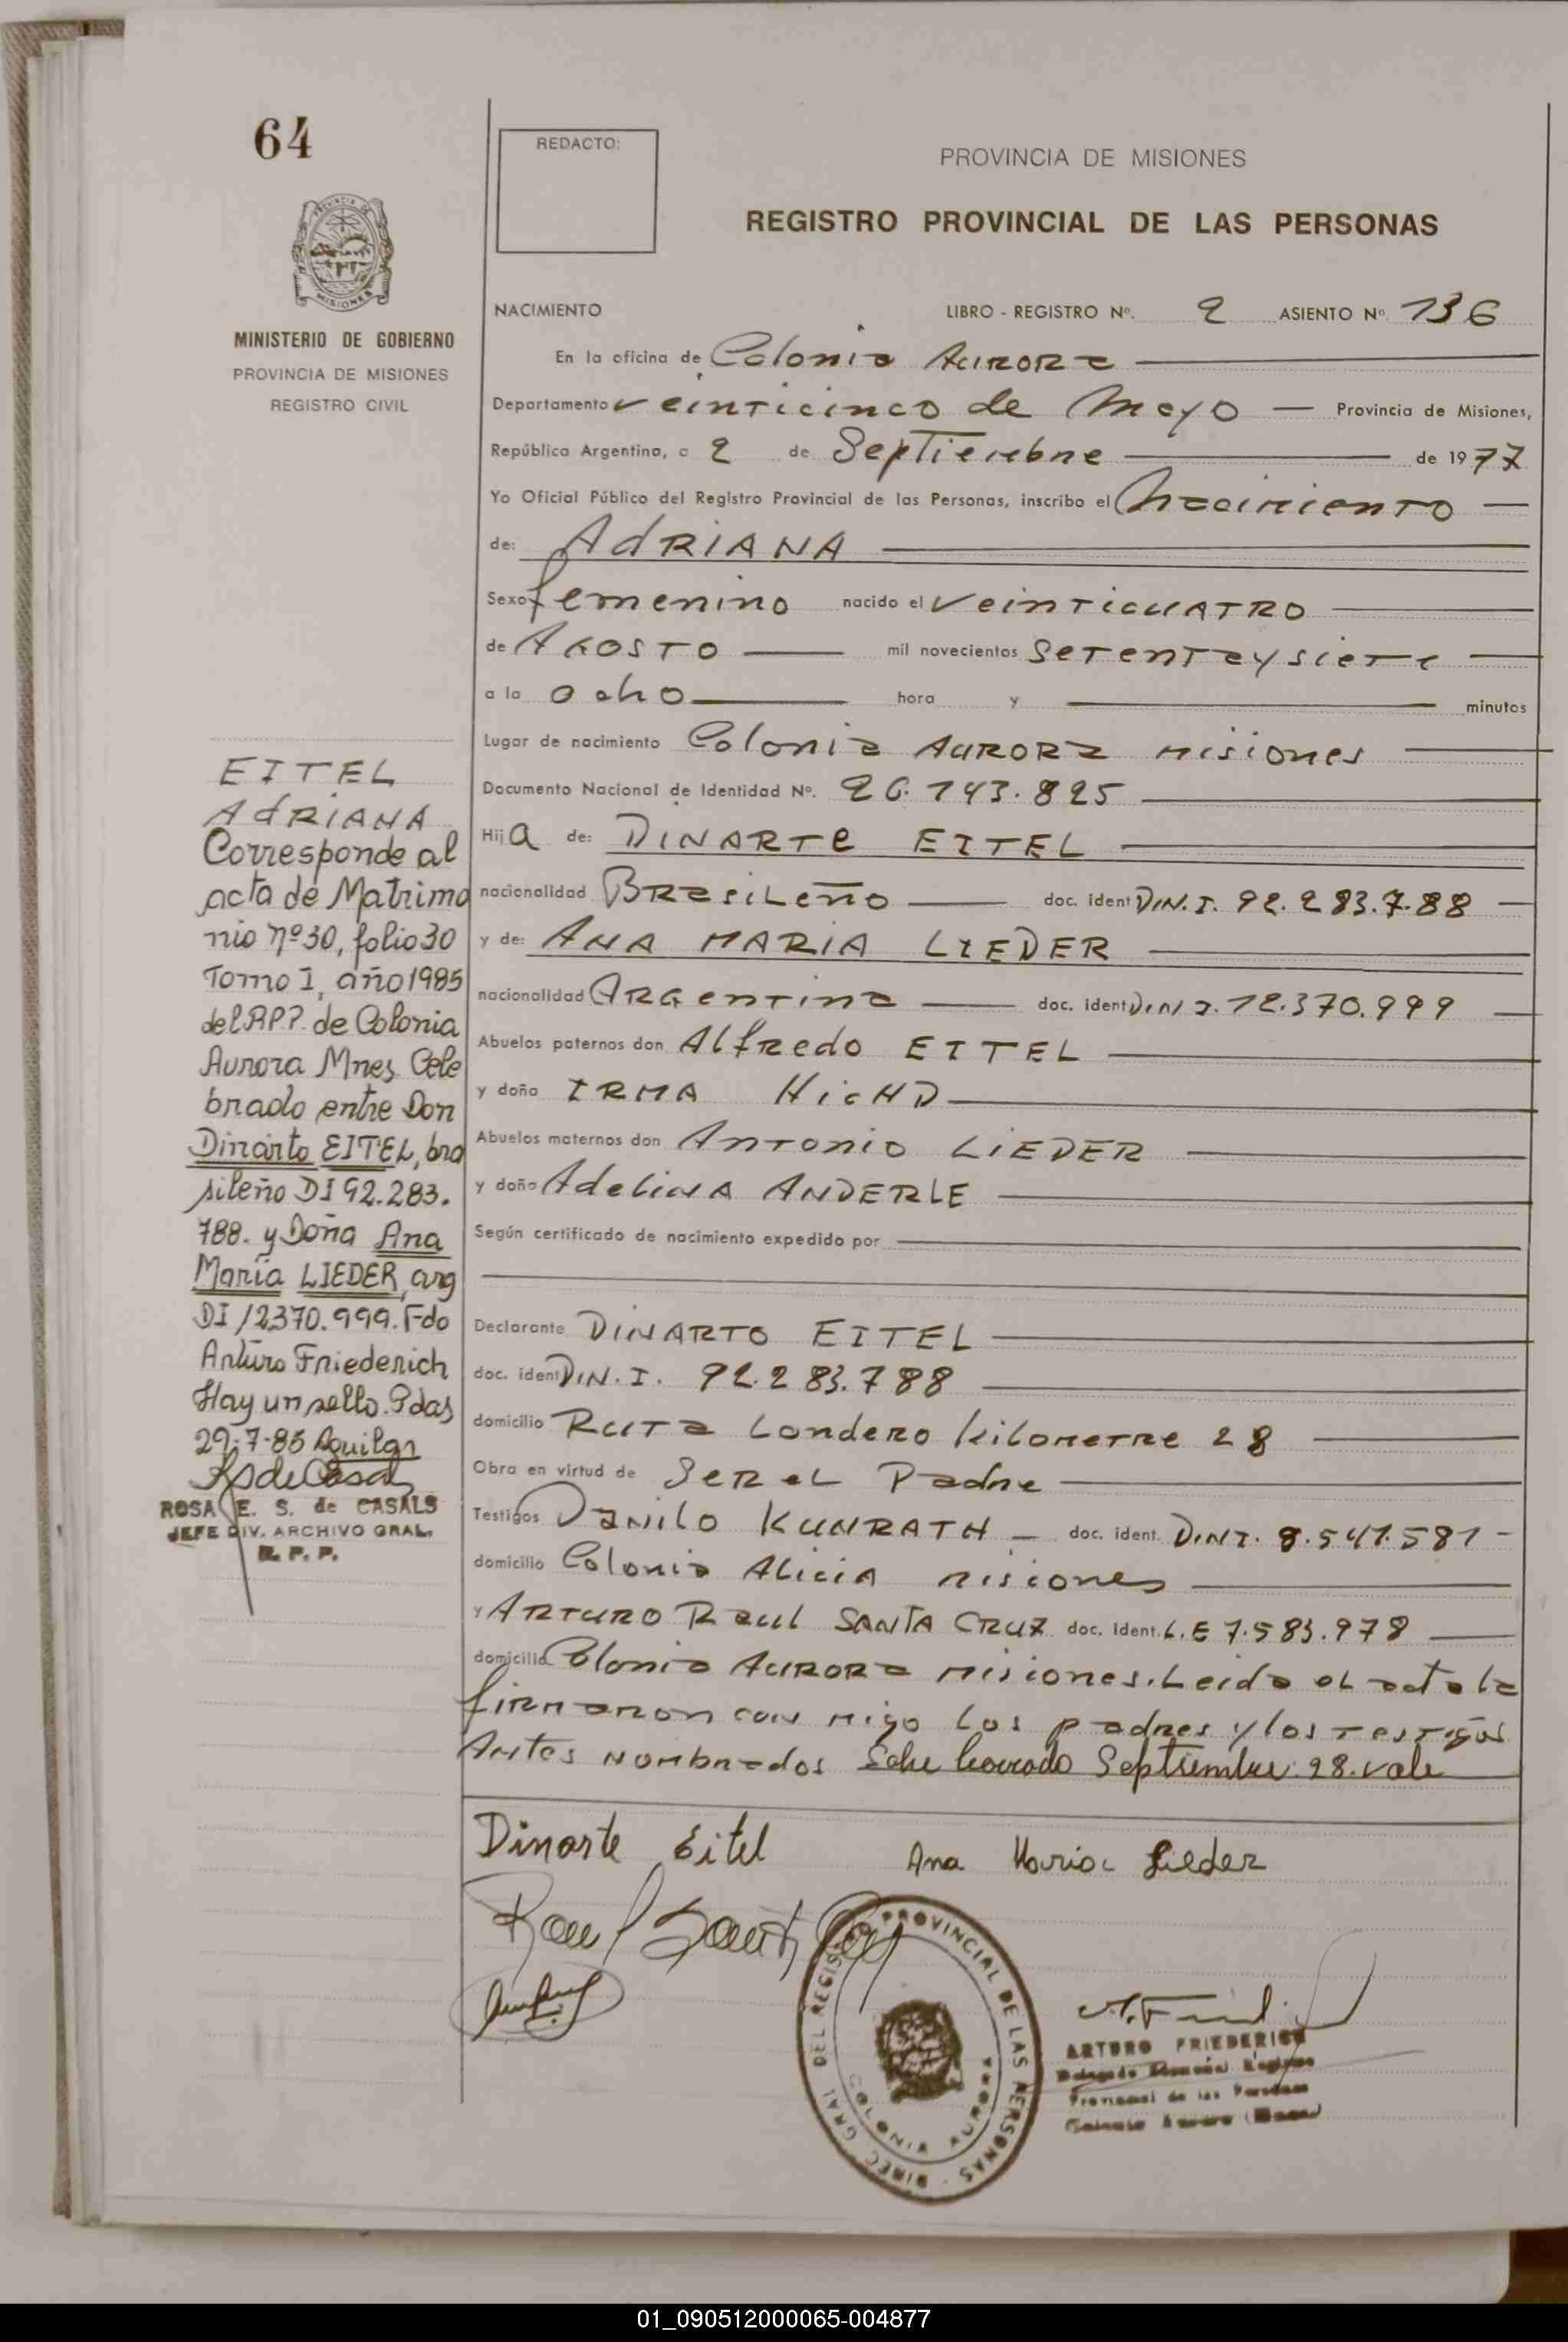 64
REDACTO:
PROVINCIA DE MISIONES
REGISTRO PROVINCIAL DE LAS PERSONAS
MISIONES
MINISTERIO DE GOBIERNO
PROVINCIA DE MISIONES
REGISTRO CIVIL
NACIMIENTO LIBRO - REGISTRO Nº. 2 ASIENTO Nº. 136
En la oficina de Colonia AURORA
Departamento veinticinco de Mayo Provincia de Misiones,
República Argentina, a 2 de Septiembre de 1977
Yo Oficial Público del Registro Provincial de las Personas, inscribo el Nacimiento
de: AdRIANA
Sexo femenino nacido el veinticuATRO
de AGOSTO mil novecientos setentaysiete
a la ocho hora y minutos
Lugar de nacimiento Colonia AURORA Misiones
Documento Nacional de Identidad Nº. 26.143.825
Hija de: DINARTe EITEL
nacionalidad BRasiLeño doc. ident DIN.I. 92.283.7.88
y de: ANA MARIA LIEDER
nacionalidad ARGentina doc. ident DIN I. 12.370.999
Abuelos paternos don Alfredo EITEL
y doña IRMA HicHD
Abuelos maternos don Antonio LiEDER
y doña AdeliNA ANDERLE
Según certificado de nacimiento expedido por
Declarante DINARTO EITEL
doc. ident DIN.I. 92.283.788
domicilio RUTA Londero kilometre 28
Obra en virtud de Ser eL Padre
Testigos DaniLo KUNRATH doc. ident. D.N.I. 8.541.581
domicilio Colonia ALiciA Misiones
y ARTURO Raul SANTA CRUZ doc. ident. L.E 7.583.978
domicilio Colonia AURORA Misiones. Leida el acta la
firmaron con migo los padres y los testigos
Antes Nombrados Sobre borrado Septiembre: 28. vale
EITEL
AdRIANA
Corresponde al
acta de Matrimo
nio nº 30, folio 30
Tomo I, año 1985
del R.P.P. de Colonia
Aurora Mnes. Cele
brado entre Don
Dinarto EITEL, bra
sileño DI 92.283.
788. y Doña Ana
María LIEDER, arg
DI 12370.999. Fdo
Arturo Friederich
Hay un sello. Pdas
29-7-85 Aguilar
ROSA E. S. de CASALS
JEFE DIV. ARCHIVO GRAL.
R. P. P.
Dinarte Eitel Ana Maria Lieder
Raul Santa Cruz
DIREC. GRAL. DEL REGISTRO PROVINCIAL DE LAS PERSONAS
COLONIA AURORA
ARTURO FRIEDERICH
Provincial de las Personas
Colonia Aurora
01_090512000065-004877